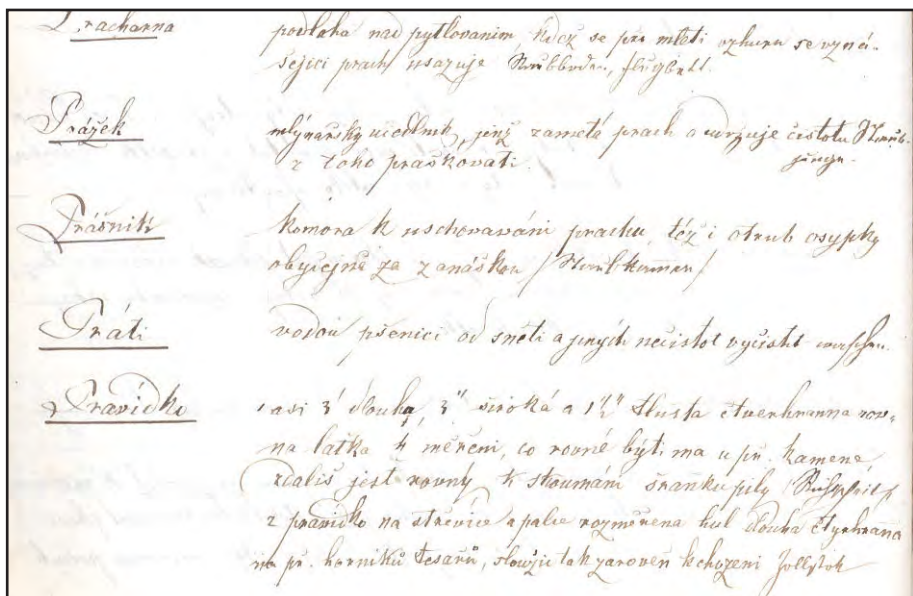 Pracharna podlaha nad pytlovanim, kdež se při mletí vzhuru se vzná-
šející prach usazuje Staubboden, flugbett.
Prážek mlýnařsky učedlnik, jenž zametá prach a udržuje čistotu Staub-
z toho praškovati. junge.
Prášnik komora k uschovavání prachu, též i otrub osypky
obyčejně za zanáškou /Staubkammer/
Práti vodou pšenici od sněti a jiných nečistot vyčistit waschen.
Pravidko asi 3' dlouha, 3" široká a 1½" tlusta čtverhranna rov-
na latka k měření, co rovné býti ma u př. kamene
zdališ jest rovný k skoumám šranku pily
z pravidko na střevice a palce rozměřena hul dlouha čtyrhrana
na př. horniků tesařů, sloužící tak zaroveň k chození Zollstok